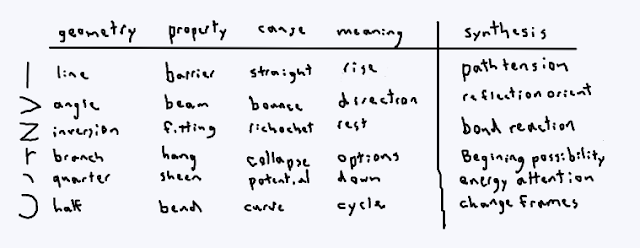 geometry property cause meaning synthesis
line barrier straight rise path tension
angle beam bounce direction reflection orient
inversion fitting richochet rest bond reaction
branch hang collapse options Begining possibility
quarter sheen potential down energy attention
half bend curve cycle change frames